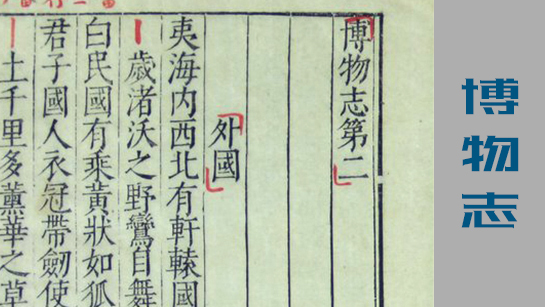 博物志第二
外國
夷海内西北有軒轅國
歲渚沃之野鸞自舞
白民國有乘黃狀如狐
君子國人衣冠帶劒使
土千里多薰華之草
博物志